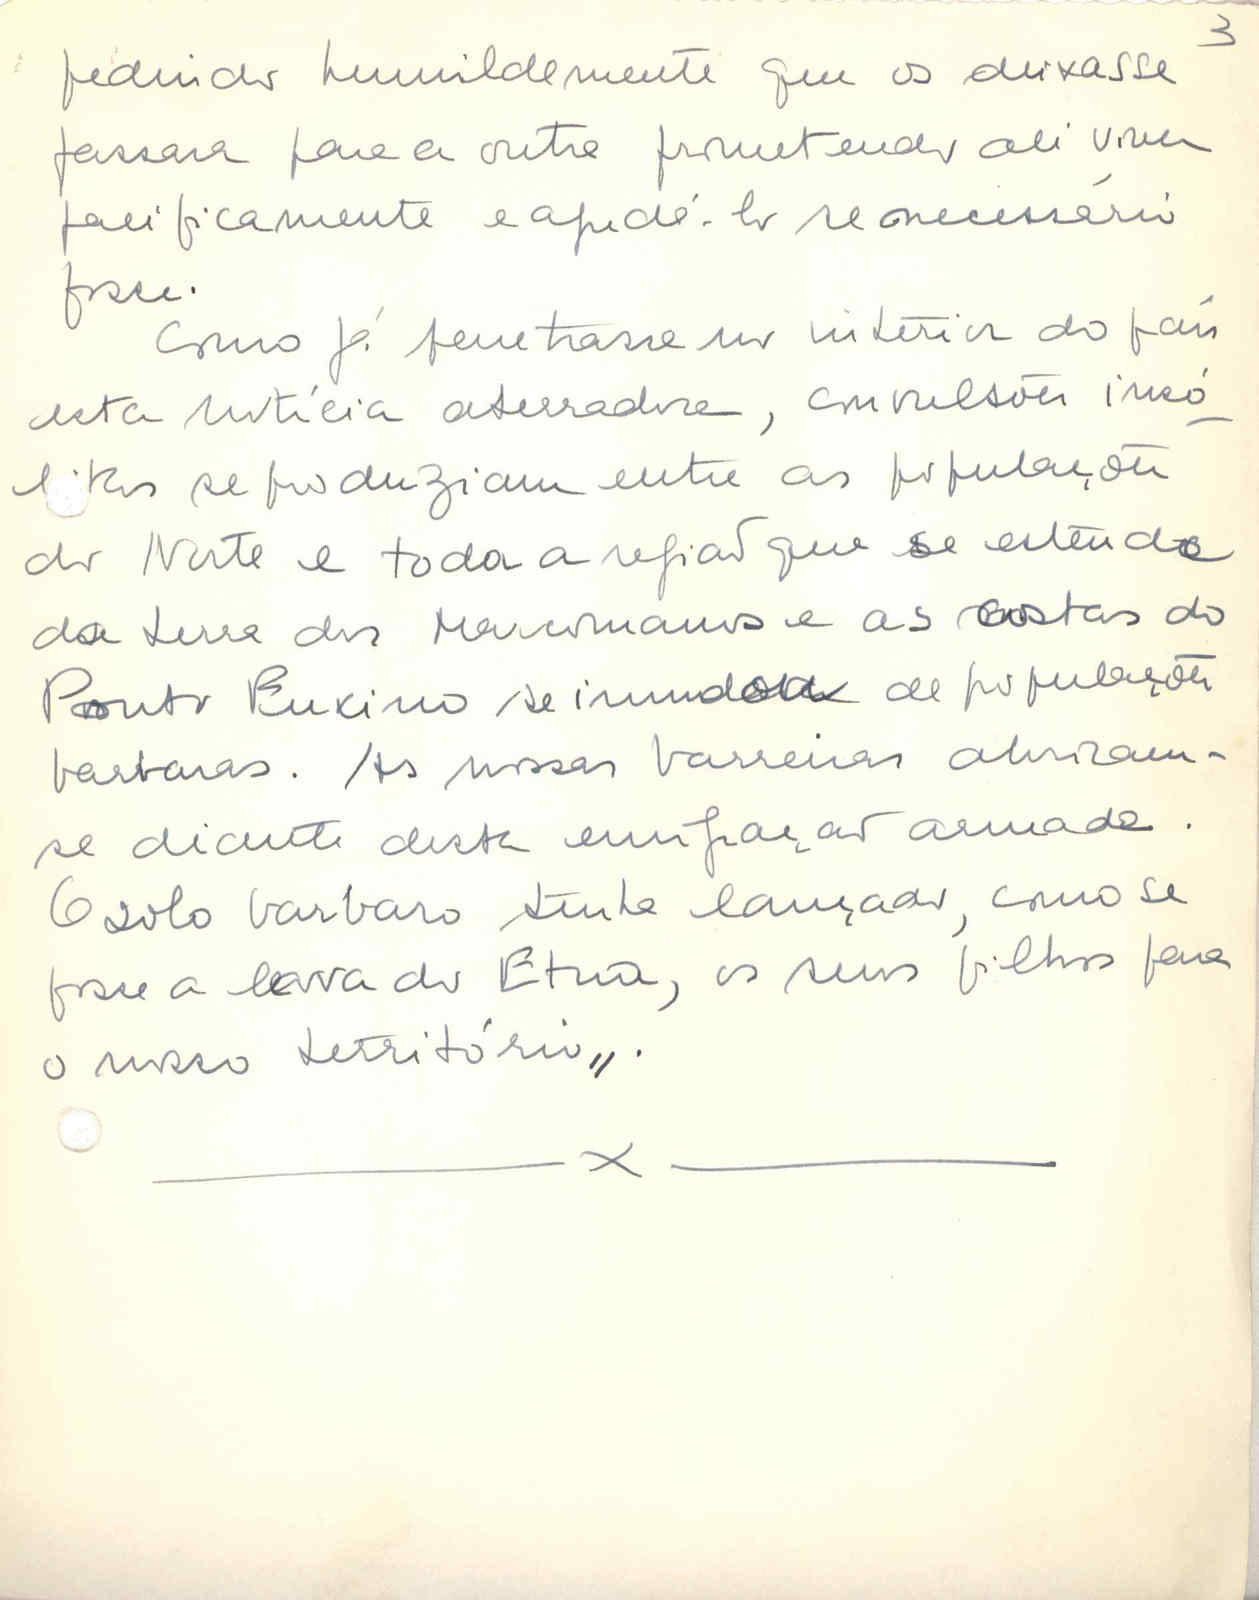 3
pedindo humildemente que os deixasse
passara para a outra prometendo ali viver
pacificamente e ajudá-lo se necessário
fosse.
Como já penetrasse no intérior do país
esta notícia aterradora, convulsões insó
litas se produziam entre as populações
do Norte e toda a região que se estende
da terra dos Marcomanos e as costas do
Ponto Euxino se inundou de populações
barbaras. As nossas barreiras abriram-
se diante desta emigração armada.
O solo barbaro tinha lançado, como se
fosse a lava do Etna, os seus filhos para
o nosso território".
x